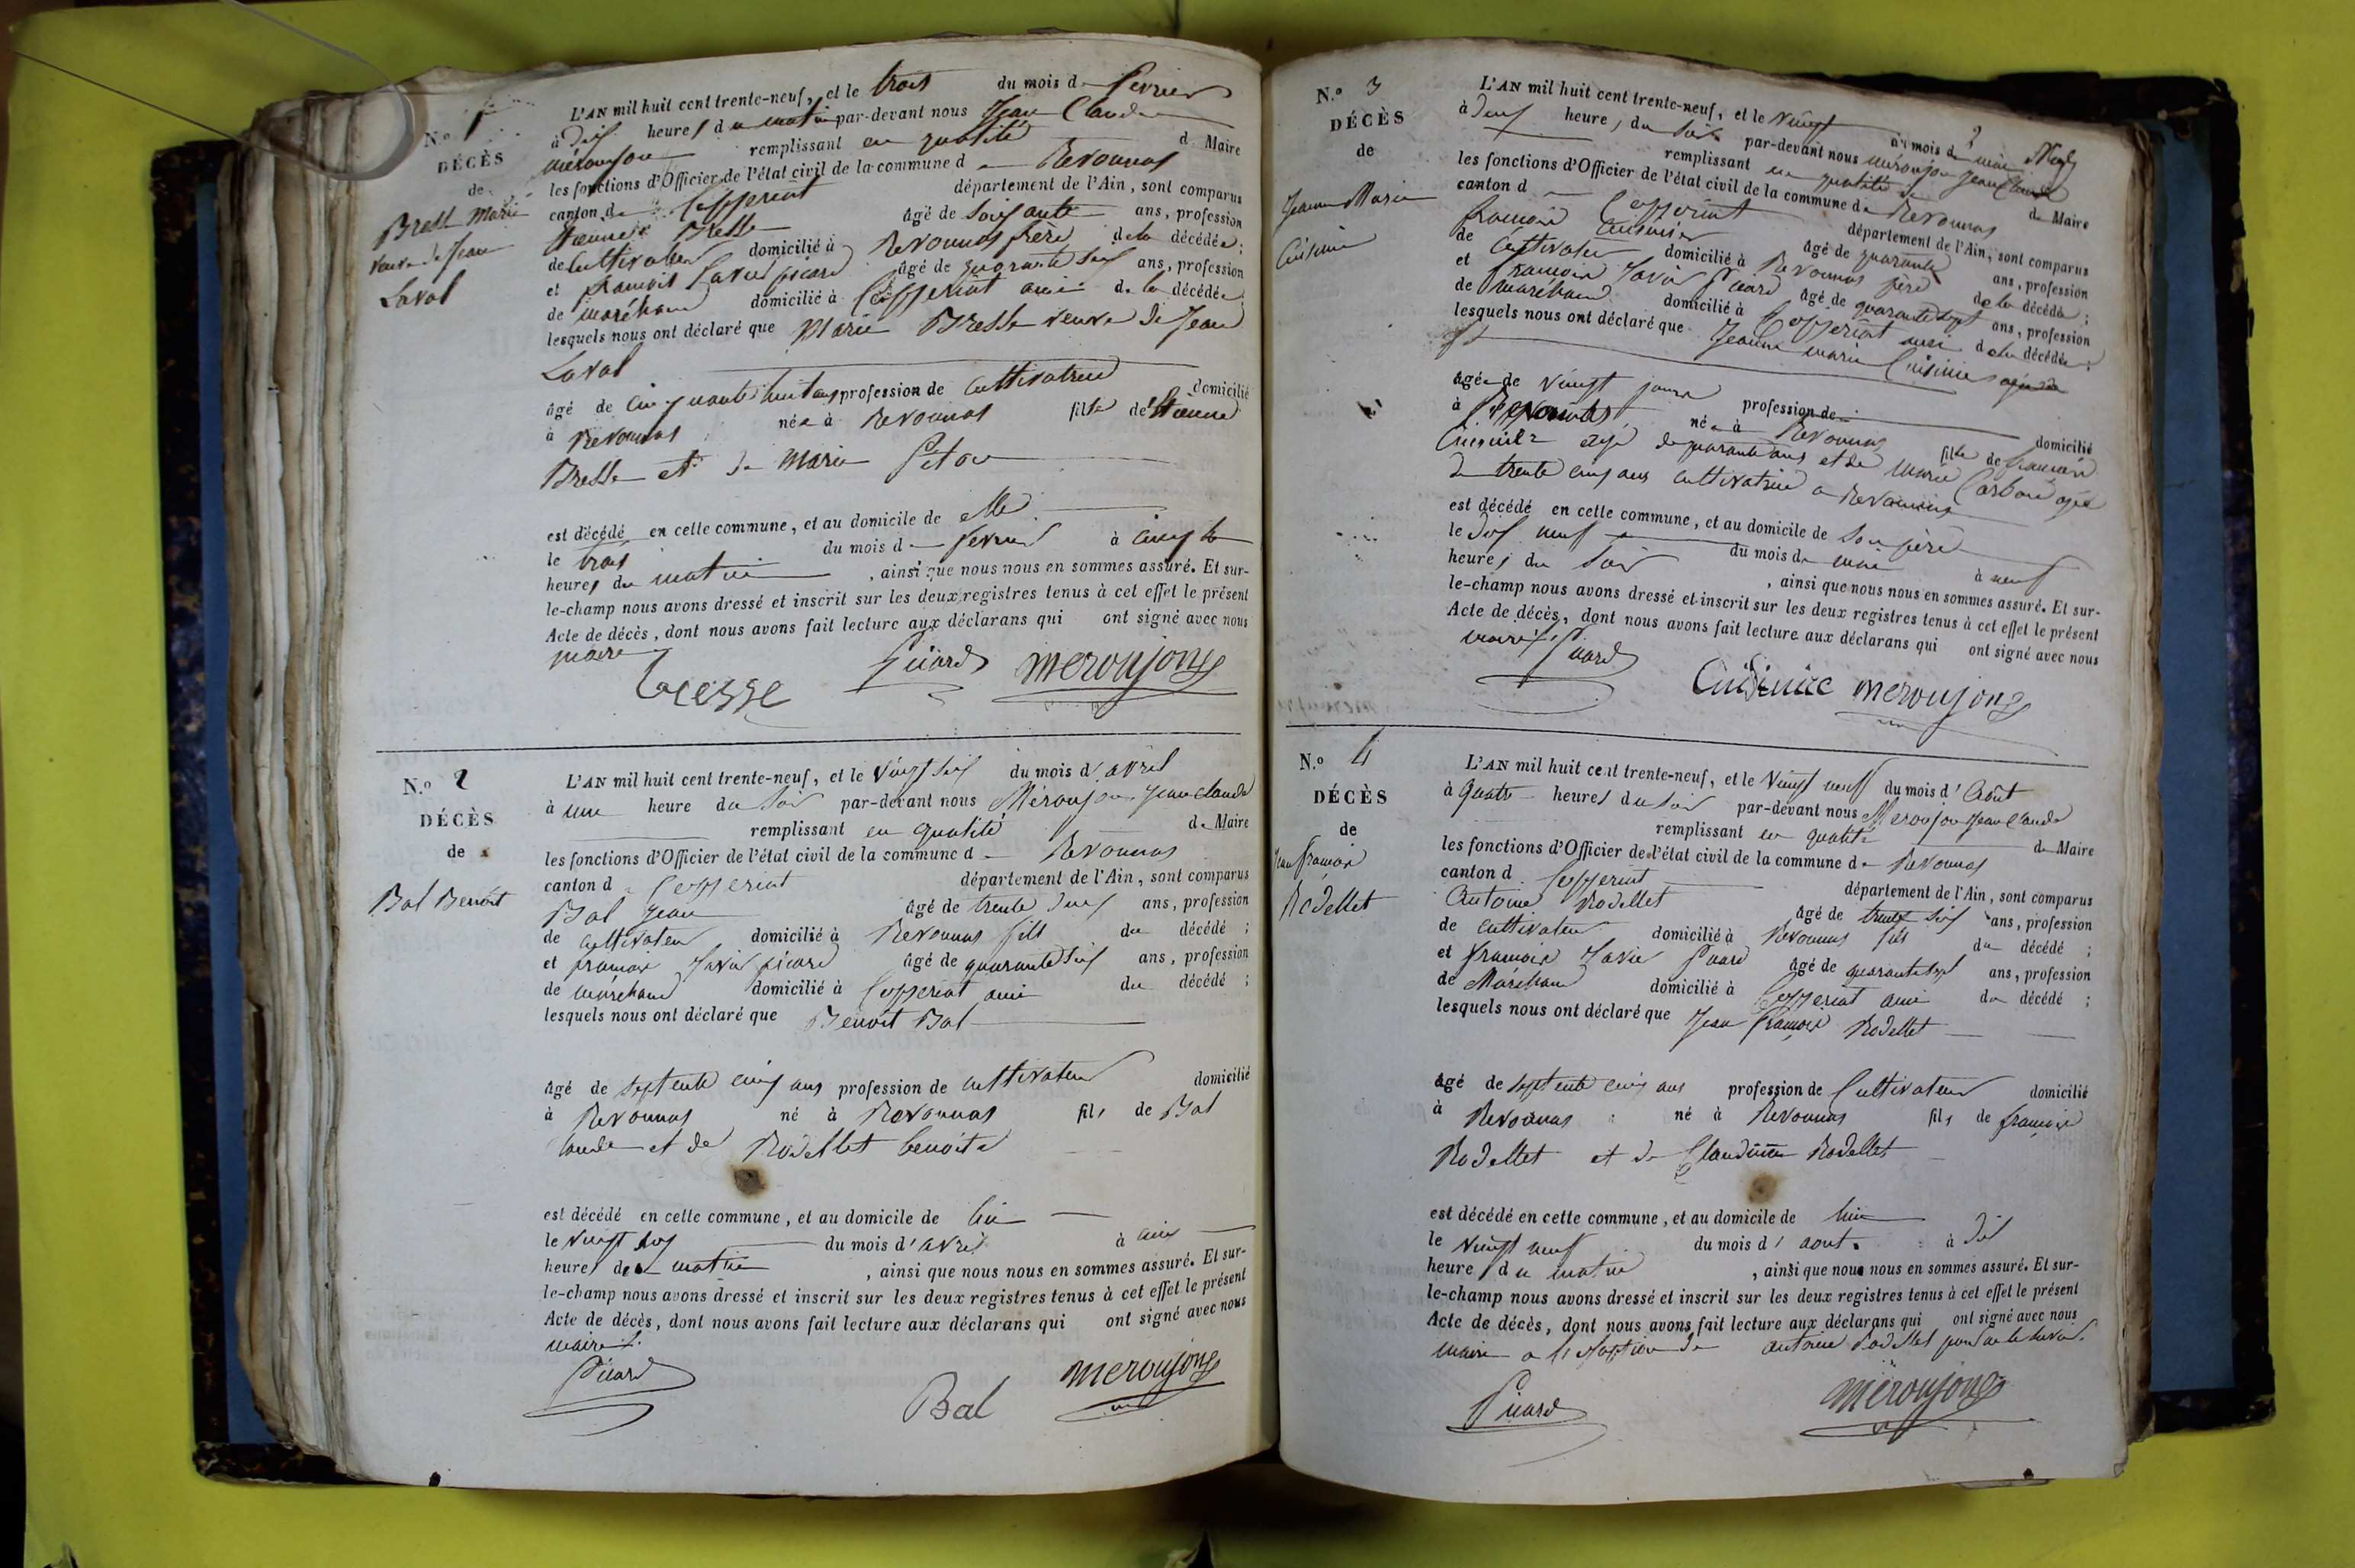 N.o 1
DÉCÈS
de
Bresse Marie
veuve de Jean
Laval
L'AN mil huit cent trente-neuf, et le trois du mois de fevrier
à dix heures du matin par-devant nous Jean Claude
méroujon remplissant en qualité de Maire
les fonctions d'Officier de l'état civil de la commune de Revonnas
canton de Ceyzeriat département de l'Ain, sont comparus
Etienne Bresse âgé de soixante ans, profession
de cultivateur domicilié à Revonnas frère de la décédée;
et françois Xavier picard âgé de quarante six ans, profession
de maréchand domicilié à Ceyzeriat ami de la décédée
lesquels nous ont déclaré que Marie Bresse veuve de Jean
Laval
âgé de cinquante huit ans profession de cultivatrice domicilié
à Revonnas née à Revonnas fille de Etienne
Bresse et de Marie
est décédé en cette commune, et au domicile de elle
le trois du mois de fevrier à cinq
heures du matin, ainsi que nous nous en sommes assuré. Et sur-
le-champ nous avons dressé et inscrit sur les deux registres tenus à cet effet le présent
Acte de décès, dont nous avons fait lecture aux déclarans qui ont signé avec nous
maire
bresse Picard meroujon
N.o 2
DÉCÈS
de
Bal Benoit
L'AN mil huit cent trente-neuf, et le vingt six du mois d'avril
à une heure du soir par-devant nous Méroujon Jean claude
remplissant en qualité de Maire
les fonctions d'Officier de l'état civil de la commune d Revonnas
canton d Ceyzeriat département de l'Ain, sont comparus
Bal Jean âgé de trente ans, profession
de cultivateur domicilié à Revonnas fils du décédé;
et françois Xavier picard âgé de quarante six ans, profession
de maréchand domicilié à Ceyzeriat ami du décédé;
lesquels nous ont déclaré que Benoit Bal
âgé de septente cinq ans profession de cultivateur domicilié
à Revonnas né à Revonnas fils de Bal
Claude et de Rodellet benoite
est décédé en cette commune, et au domicile de lui
le vingt six du mois d'avril à
heures du matin, ainsi que nous nous en sommes assuré. Et sur-
le-champ nous avons dressé et inscrit sur les deux registres tenus à cet effet le présent
Acte de décès, dont nous avons fait lecture aux déclarans qui ont signé avec nous
maire
Picard Bal meroujon
N.o 3
DÉCÈS
de
Jeanne Marie
Cuisinie
L'AN mil huit cent trente-neuf, et le vingt du mois de mai
à deux heures du soir par-devant nous méroujon Jean Claude
remplissant en qualité de Maire
les fonctions d'Officier de l'état civil de la commune de Revonnas
canton d Ceyzeriat département de l'Ain, sont comparus
francois Cuisinier âgé de quarante ans, profession
de cultivateur domicilié à Revonnas père de la décédé;
et francois Xavier Picard âgé de quarante sept ans, profession
de maréchand domicilié à Ceyzeriat ami de la décédée;
lesquels nous ont déclaré que Jeanne marie Cuisinie
âgée de vingt jours profession de domicilié
à Revonnas née à Revonnas fille de francois
Cuisinie agé de quarante ans et de Marie agée
de trente cinq ans cultivatrice a Revonnas
est décédé en cette commune, et au domicile de son père
le dix neuf du mois de mai à neuf
heures du soir, ainsi que nous nous en sommes assuré. Et sur-
le-champ nous avons dressé et inscrit sur les deux registres tenus à cet effet le présent
Acte de décès, dont nous avons fait lecture aux déclarans qui ont signé avec nous
maire
Picard Cuisinie meroujon
N.o 4
DÉCÈS
de
Jean françois
Rodellet
L'AN mil huit cent trente-neuf, et le vingt neuf du mois d'Août
à quatre heures du soir par-devant nous Meroujon Jean Claude
remplissant en qualité de Maire
les fonctions d'Officier de l'état civil de la commune de Revonnas
canton d Ceyzeriat département de l'Ain, sont comparus
Antoine Rodellet âgé de trente six ans, profession
de cultivateur domicilié à Revonnas fils du décédé;
et françois Xavier Picard âgé de quarante sept ans, profession
de Maréchand domicilié à Ceyzeriat ami du décédé;
lesquels nous ont déclaré que Jean françois Rodellet
âgé de septente cinq ans profession de Cultivateur domicilié
à Revonnas né à Revonnas fils de françois
Rodellet et de Claudine Rodellet
est décédé en cette commune, et au domicile de lui
le vingt neuf du mois d'aout à dix
heures du matin, ainsi que nous nous en sommes assuré. Et sur-
le-champ nous avons dressé et inscrit sur les deux registres tenus à cet effet le présent
Acte de décès, dont nous avons fait lecture aux déclarans qui ont signé avec nous
maire a l'exception de antoine Rodellet
Picard meroujon